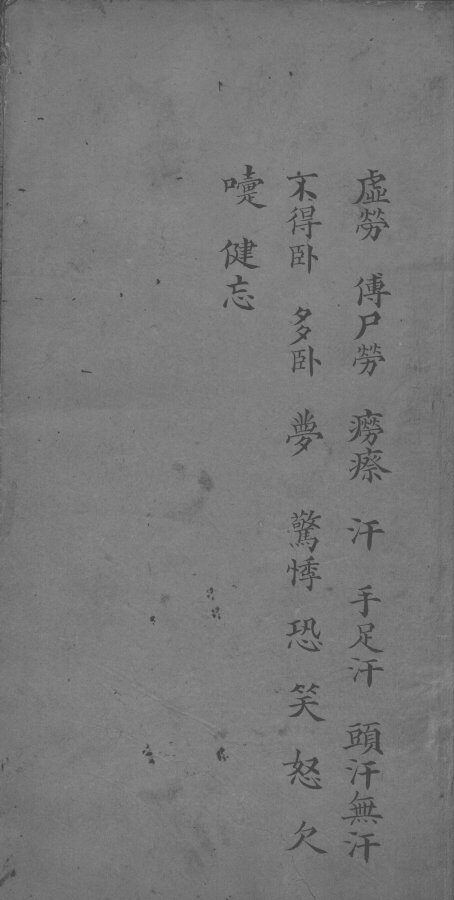 虛勞　傳尸勞　癆瘵　汗　手足汗　頭汗無汗
不得卧　多卧　夢　驚悸　恐　笑　怒　欠
嚏　健忘